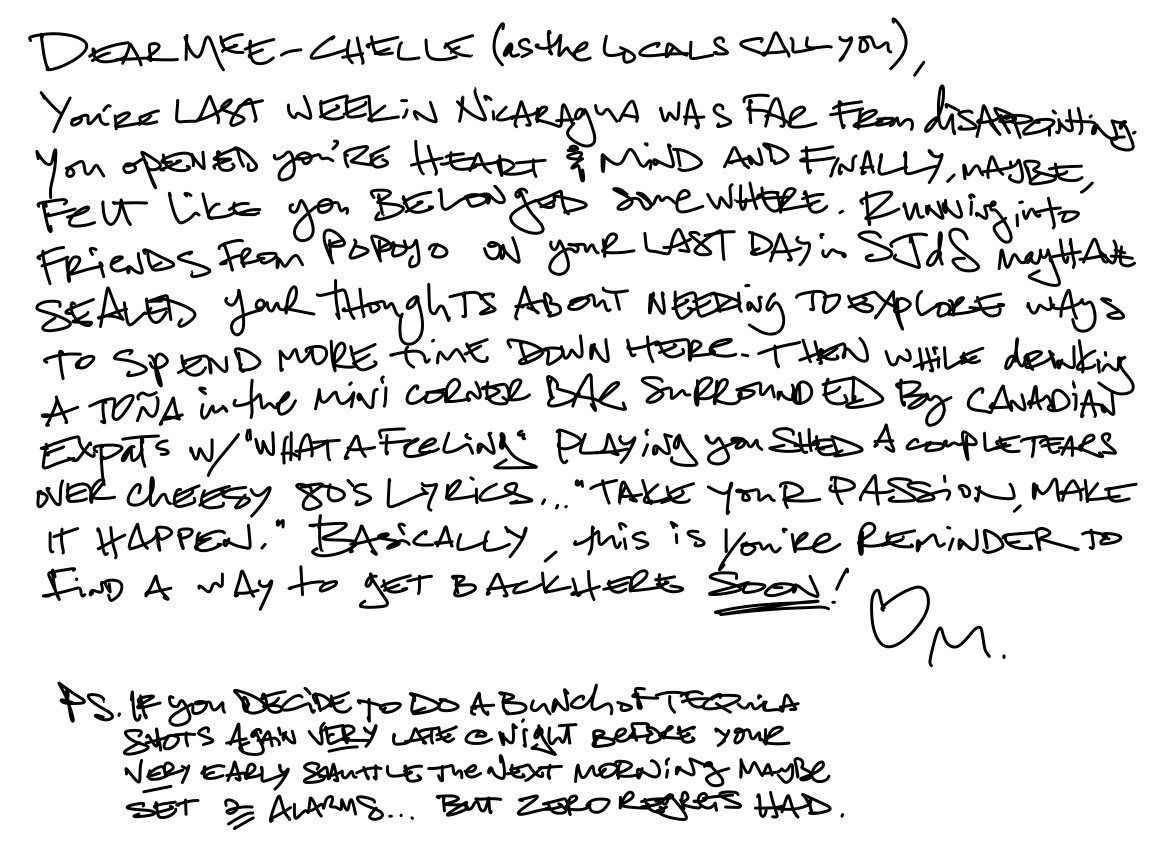 DEAR MEE-CHELLE (as the LOCALS CALL you),
You're LAST WEEK in NICARAGUA WAS FAR FROM disAPPointing.
You opened you're HEART & MIND AND FINALLY, MAYBE,
FELT LIKE you BELONGED somewHERE. Running into
FRIENDS FROM POPOYO ON your LAST DAY in SJdS may HAVE
SEALED your thoughts ABOUT NEEDING TO EXPLORE WAYS
TO SPEND MORE time DOWN HERE. THEN WHILE drinking
A TOÑA in the MINI CORNER BAR SURROUNDED By CANADIAN
Expats w/ "WHAT A Feeling" PLAYing you SHED A couple TEARS
OVER CHEESY 80's LYRICS... "TAKE YOUR PASSION, MAKE
IT HAPPEN." BASICALLY, this is You're REMINDER TO
find A WAY to GET BACK HERE SOON! ♡ M.
PS. IF you DECIDE TO DO A BUNCH OF TEQUILA
SHOTS AGAIN VERY LATE @ Night BEFORE YOUR
VERY EARLY SHUTTLE THE NEXT MORNING MAYBE
SET 2 ALARMS... BUT ZERO REGRETS HAD.